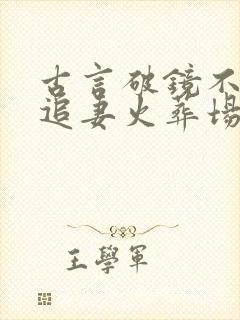 古言破鏡不
追妻火葬場
王學軍